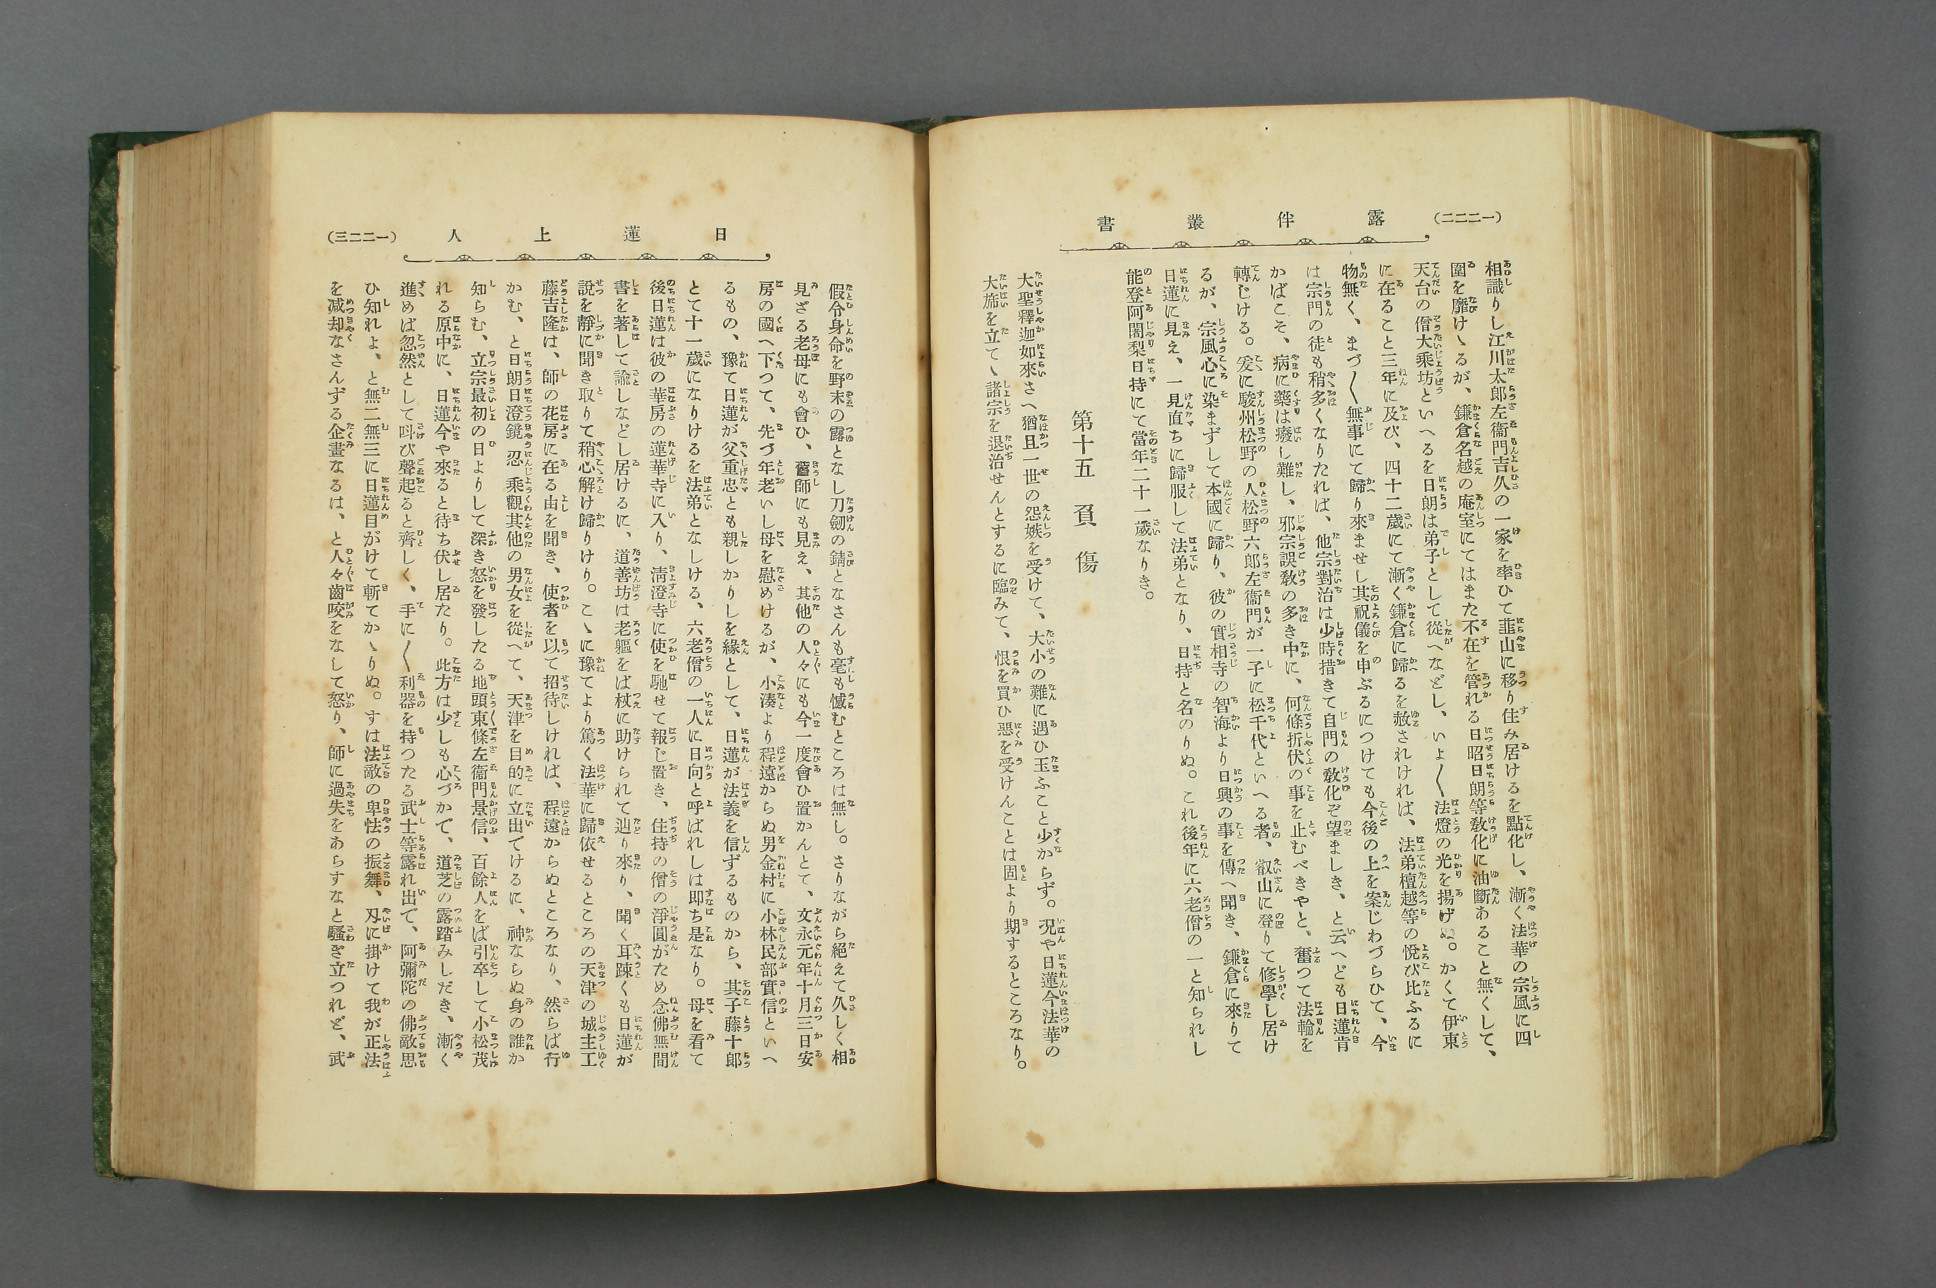 (一二二二)
露伴叢書
相識りし江川太郎左衞門吉久の一家を率ひて韮山に移り住み居けるを點化し、漸く法華の宗風に四
圍を靡けゝるが、鎌倉名越の庵室にてはまた不在を管れる日昭日朗等敎化に油斷あること無くして、
天台の僧大乘坊といへるを日朗は弟子として從へなどし、いよ〱法燈の光を揚げぬ。かくて伊東
に在ること三年に及び、四十二歲にて漸く鎌倉に歸るを赦されければ、法弟檀越等の悅び比ふるに
物無く、まづ〱無事にて歸り來ませし其祝儀を申ぶるにつけても今後の上を案じわづらひて、今
は宗門の徒も稍多くなりたれば、他宗對治は少時措きて自門の敎化ぞ望ましき、と云へども日蓮肯
かばこそ、病に藥は癈し難し、邪宗誤敎の多き中に、何條折伏の事を止むべきやと、奮つて法輪を
轉じける。爰に駿州松野の人松野六郎左衞門が一子に松千代といへる者、叡山に登りて修學し居け
るが、宗風心に染まずして本國に歸り、彼の實相寺の智海より日興の事を傳へ聞き、鎌倉に來りて
日蓮に見え、一見直ちに歸服して法弟となり、日持と名のりぬ。これ後年に六老僧の一と知られし
能登阿闍梨日持にて當年二十一歲なりき。
第十五 負傷
大聖釋迦如來さへ猶且一世の怨嫉を受けて、大小の難に遇ひ玉ふこと少からず。況や日蓮今法華の
大旆を立てゝ諸宗を退治せんとするに臨みて、恨を買ひ惡を受けんことは固より期するところなり。
日蓮上人
(一二二三)
假令身命を野末の露となし刀劒の錆となさんも毫も憾むところは無し。さりながら絕えて久しく相
見ざる老母にも會ひ、舊師にも見え、其他の人々にも今一度會ひ置かんとて、文永元年十月三日安
房の國へ下つて、先づ年老いし母を慰めけるが、小湊より程遠からぬ男金村に小林民部實信といへ
るもの、豫て日蓮が父重忠とも親しかりしを緣として、日蓮が法義を信ずるものから、其子藤十郎
とて十一歲になりけるを法弟となしける、六老僧の一人に日向と呼ばれしは即ち是なり。母を看て
後日蓮は彼の華房の蓮華寺に入り、淸澄寺に使を馳せて報じ置き、住持の僧の淨圓がため念佛無間
書を著して諭しなどし居けるに、道善坊は老軀をば杖に助けられて辿り來り、聞く耳踈くも日蓮が
說を靜に聞き取りて稍心解け歸りけり。こゝに豫てより篤く法華に歸依せるところの天津の城主工
藤吉隆は、師の花房に在る由を聞き、使者を以て招待しければ、程遠からぬところなり、然らば行
かむ、と日朗日澄鏡忍乘觀其他の男女を從へて、天津を目的に立出でけるに、神ならぬ身の誰か
知らむ、立宗最初の日よりして深き怒を發したる地頭東條左衞門景信、百餘人をば引卒して小松茂
れる原中に、日蓮今や來ると待ち伏し居たり。此方は少しも心づかで、道芝の露踏みしだき、漸く
進めば忽然として叫び聲起ると齊しく、手に〱利器を持つたる武士等露れ出で、阿彌陀の佛敵思
ひ知れよ、と無二無三に日蓮目がけて斬てかゝりぬ。すは法敵の卑怯の振舞、刄に掛けて我が正法
を减却なさんずる企畫なるは、と人々齒咬をなして怒り、師に過失をあらすなと騷ぎ立つれど、武